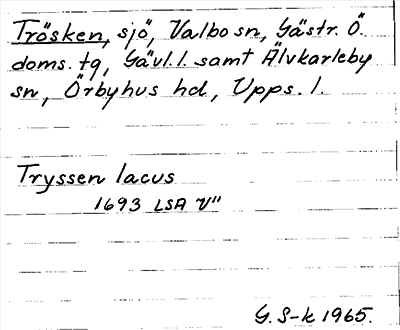 Trösken, sjö, Valbo sn, Gästr. Ö.
doms. tg, Gävl. l. samt Älvkarleby
sn, Örbyhus hd, Upps. l.
Tryssen lacus
1693 LSA V"
G. S-k 1965.